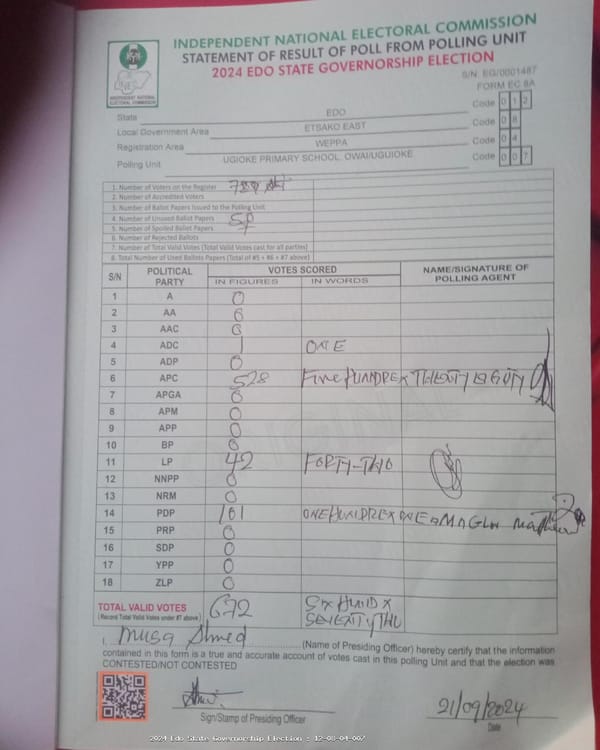 INDEPENDENT NATIONAL ELECTORAL COMMISSION
STATEMENT OF RESULT OF POLL FROM POLLING UNIT
2024 EDO STATE GOVERNORSHIP ELECTION
S/N: EG/0001487
FORM EC 8A
INEC
INDEPENDENT NATIONAL
ELECTORAL COMMISSION
State EDO Code 0 1 2
Local Government Area ETSAKO EAST Code 0 8
Registration Area WEPPA Code 0 4
Polling Unit UGIOKE PRIMARY SCHOOL, OWAI/UGUIOKE Code 0 0 7
1. Number of Voters on the Register
2. Number of Accredited Voters
3. Number of Ballot Papers Issued to the Polling Unit
4. Number of Unused Ballot Papers
5. Number of Spoiled Ballot Papers
6. Number of Rejected Ballots
7. Number of Total Valid Votes (Total Valid Votes cast for all parties)
8. Total Number of Used Ballots Papers (Total of #5 + #6 + #7 above)
S/N POLITICAL PARTY VOTES SCORED NAME/SIGNATURE OF POLLING AGENT
IN FIGURES IN WORDS
1 A 0
2 AA 0
3 AAC 0
4 ADC 1 ONE
5 ADP 0
6 APC 528 FIVE HUNDRE X TWENTY EIGHT
7 APGA 0
8 APM 0
9 APP 0
10 BP 0
11 LP 42 FORTY-TWO
12 NNPP 0
13 NRM 0
14 PDP 101 ONE HUNDRE X ONE Matthew
15 PRP 0
16 SDP 0
17 YPP 0
18 ZLP 0
TOTAL VALID VOTES 672 SIX HUND X
(Record Total Valid Votes under #7 above) SEVENTY TWO
I, Musa Ahmed (Name of Presiding Officer) hereby certify that the information
contained in this form is a true and accurate account of votes cast in this polling Unit and that the election was
CONTESTED/NOT CONTESTED
Sign/Stamp of Presiding Officer
21/09/2024
Date
2024 Edo State Governorship Election : 12-08-04-007